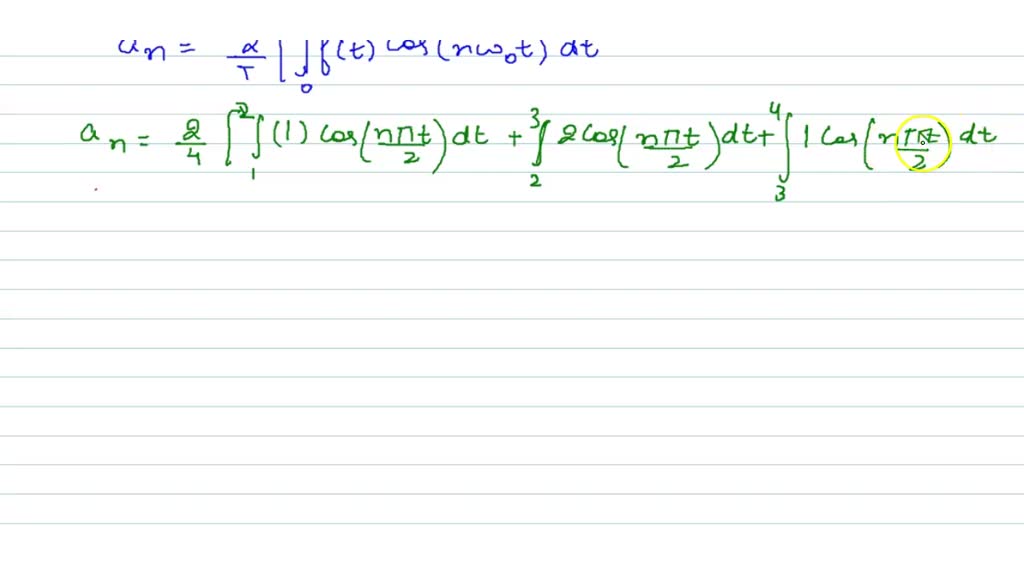 an = 2/T [∫₀ f(t) cos(nω₀t) dt
an = 2/4 [∫₁² (1) cos(nπt/2) dt + ∫₂³ 2cos(nπt/2) dt + ∫₃⁴ 1 cos(nπt/2) dt